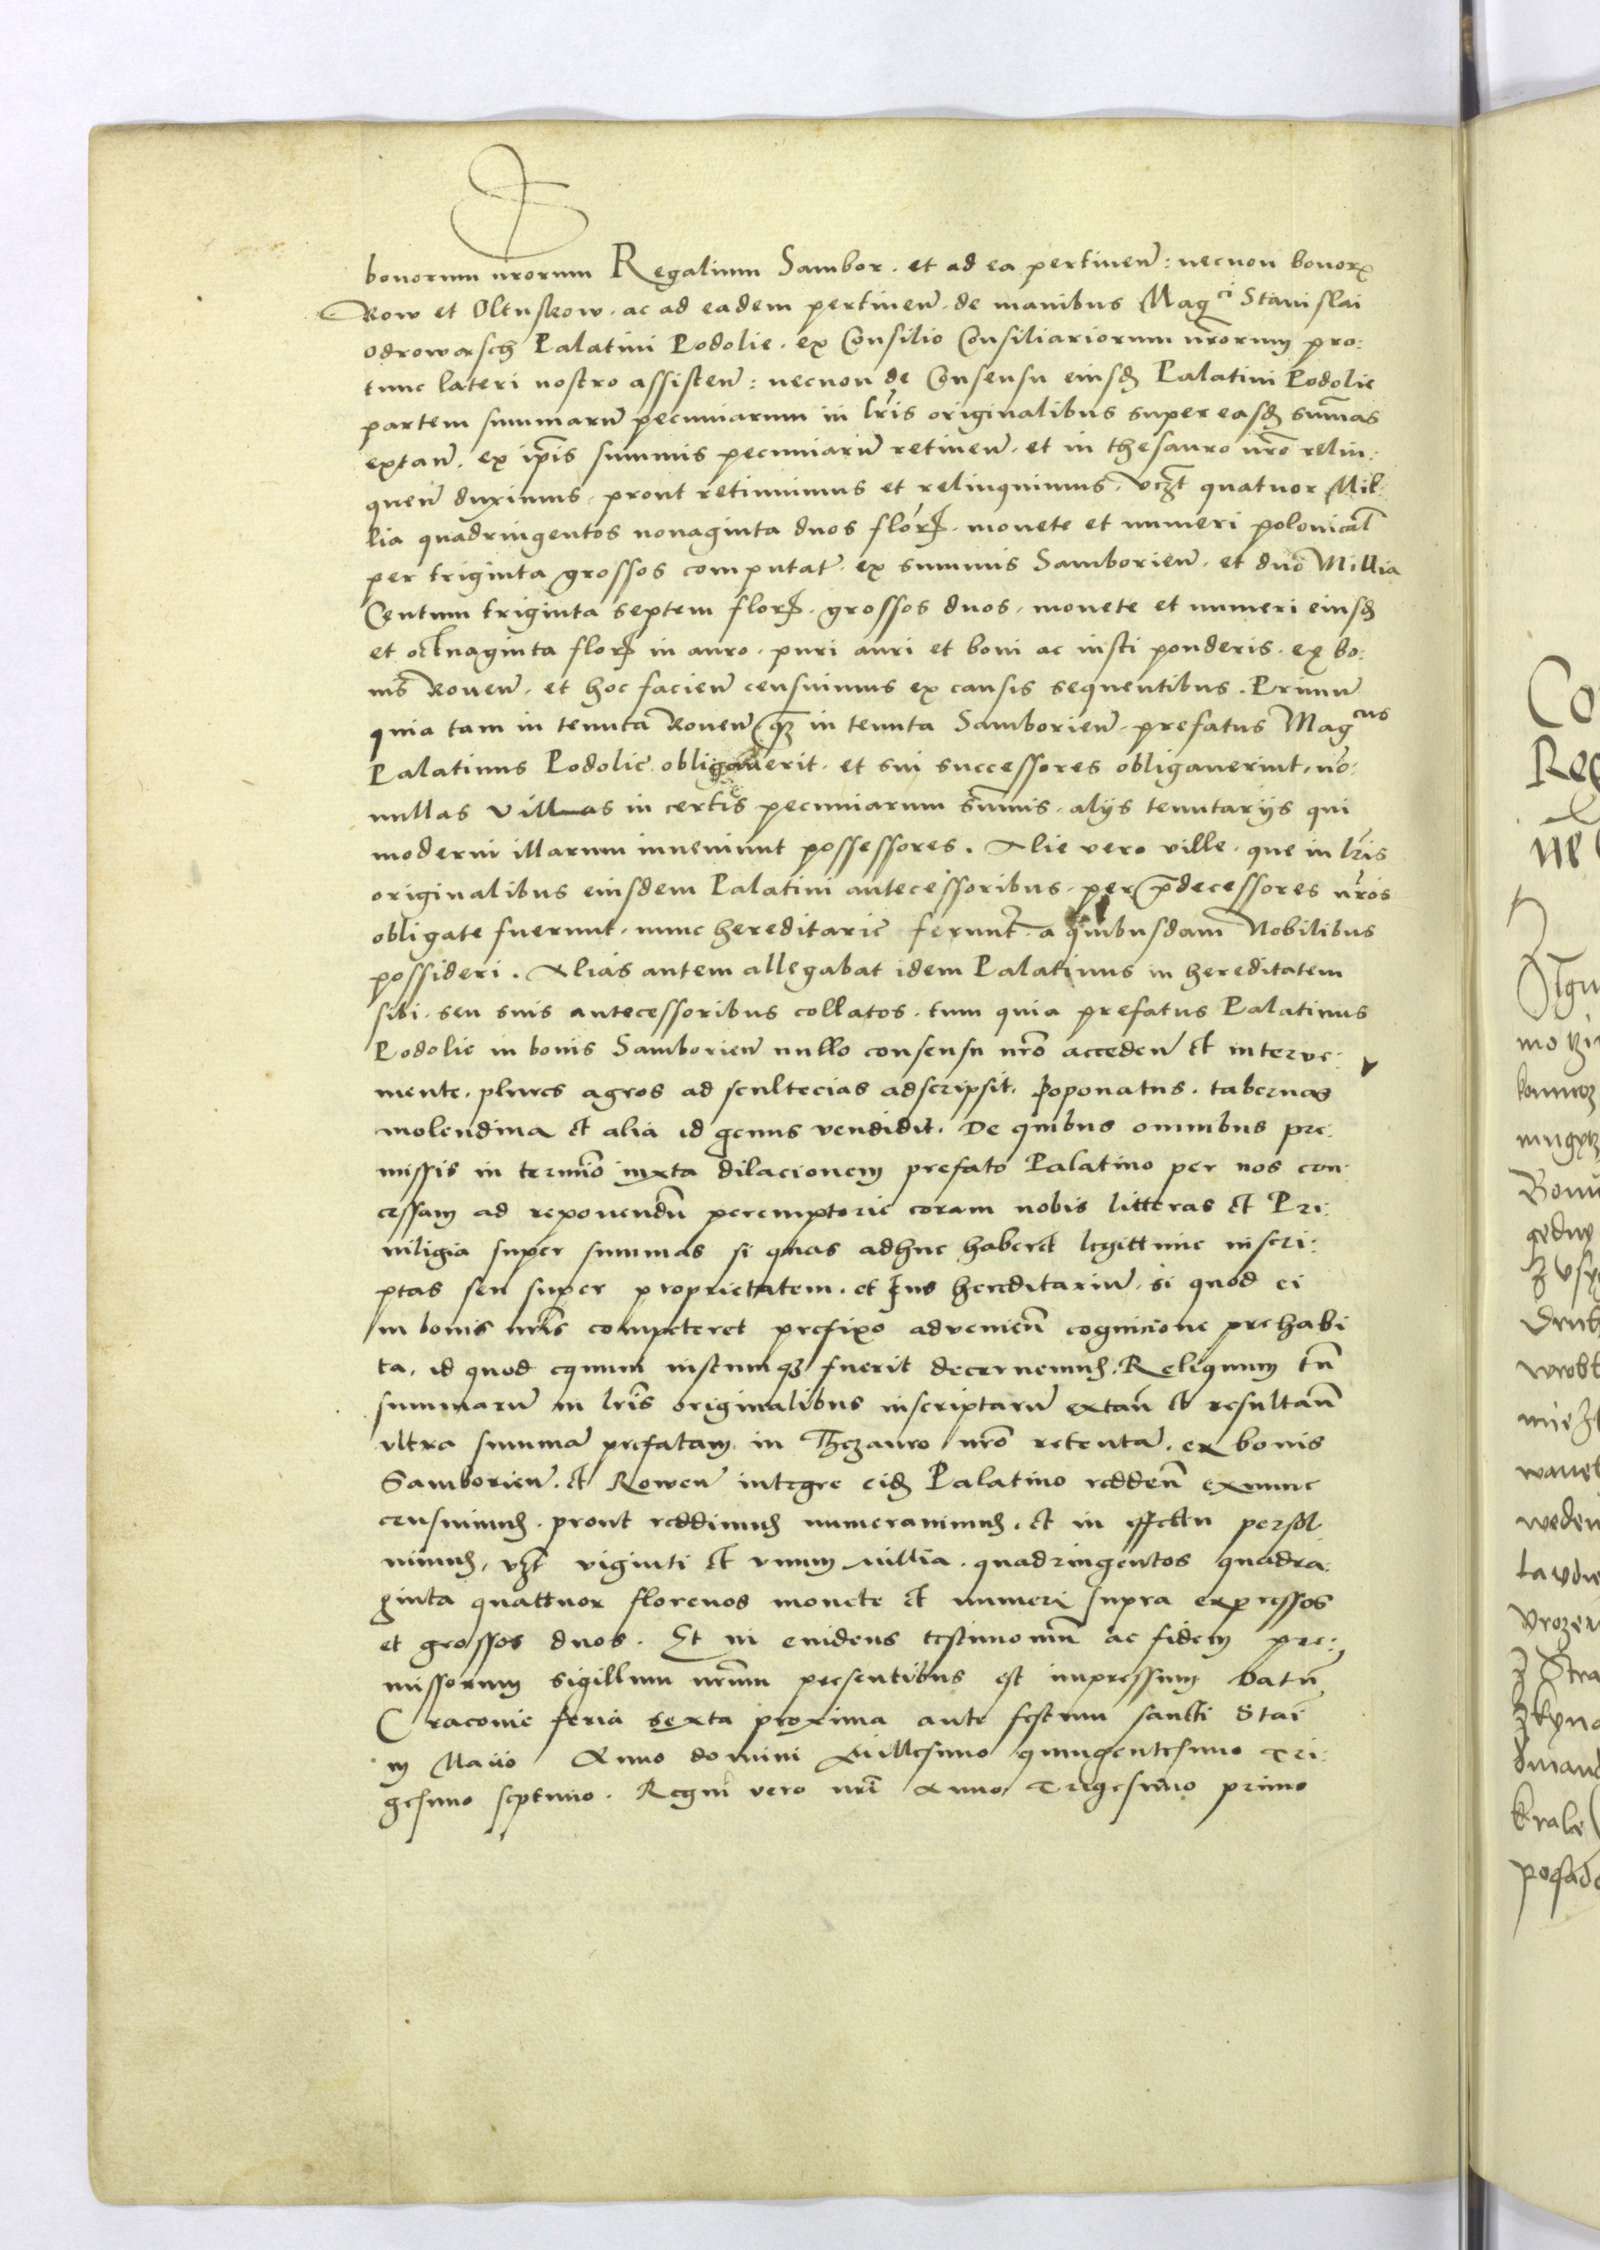 bonorum nrorum Regalium Sambor. et ad ea pertinen: necnon bonorꝝ
Row et Oltuskow. ac ad eadem pertinen. de manibus Mag^ci Stanislai
Odrowasch Palatini Podolie. ex Consilio Consiliariorum nrorum pro:
tunc lateri nostro assisten: necnon de Consensu eiusd Palatini Podolie
partem summarū pecuniarum in lris originalibus super easd sumas
extan. ex ipis summis pecuniarū retinen. et in thesauro nro relin:
quen duximus. prout retinuimus et relinquimus. vczt quatuor Mil:
lia quadringentos nonaginta duos flor. monete et numeri polonical
per triginta grossos computat. ex summis Samborien. et duo Millia
Centum triginta septem flor. grossos duos. monete et numeri eiusd
et octuaginta flor in auro. puri auri et boni ac iusti ponderis. ex bo:
nis Rouen. et hoc facien censuimus ex causis sequentibus. Primū
quia tam in tenuta Rouen qz in tenuta Samborien. prefatus Mag^cus
Palatinus Podolie obligauerit. et sui successores obligauerint, no:
nullas villas in certis pecuniarum sumis. alijs tenutarijs qui
moderni illarum inueniunt possessores. Alie vero ville. que in lris
originalibus eiusdem Palatini antecessoribus. per predecessores nros
obligate fuerunt. nunc hereditarie ferunt a quibusdam Nobilibus
possideri. Alias autem allegabat idem Palatinus in hereditatem
sibi. seu suis antecessoribus collatos. tum quia prefatus Palatinus
Podolie in bonis Samborien nullo consensu nro acceden et interve:
niente. plures agros ad scultecias adscripsit. poponatus. tabernas
molendina et alia id genus vendidit. De quibus omnibus pre:
missis in termio iuxta dilacionem prefato Palatino per nos con:
cessam ad reponendū peremptorie coram nobis litteras et Pri:
uiligia super summas si quas adhuc haberet legittime inscri:
ptas seu super proprietatem. et Ius hereditariū. si quod ei
in bonis nris competeret prefixo advenien cognicione prehabi
ta. id quod equum iustumqz fuerit decernemus. Reliquum tn
summarū in lris originalibus inscriptarū extan et resultan
vltra summā prefatam. in Thezauro nro retentā. ex bonis
Samborien. et Rowen integre eid Palatino redden exnunc
censuimus. prout reddimus numeramus. et in effectu persol
uimus, vzt viginti et vnum millia. quadringentos quadra:
ginta quattuor florenos monete et numeri supra expressos
et grossos duos. Et in euidens testimoniū ac fidem pre:
missorum sigillum nrum presentibus est impressum Datū
Cracouie feria sexta proxima ante festum sancti Stai
in Maijo Anno domini Millesimo quingentesimo Tri:
gesimo septimo. Regni vero nri Anno Trigesimo primo